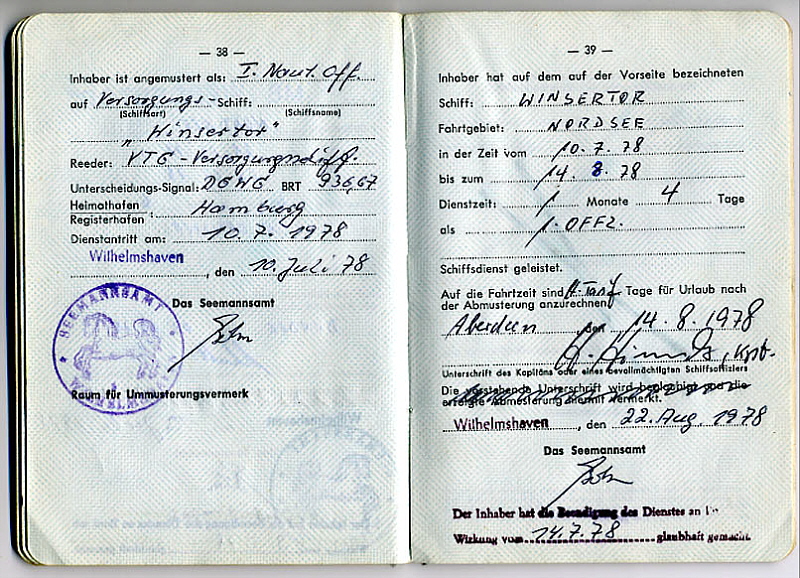 — 38 —
Inhaber ist angemustert als: I. Naut. Off.
auf Versorgungs - Schiff:
(Schiffsart) (Schiffsname)
„Hinsertor"
Reeder: VTG - Versorgungsschiff.
Unterscheidungs-Signal: DGWG BRT 936,67
Heimathafen
Registerhafen : Hamburg
Dienstantritt am: 10. 7. 1978
Wilhelmshaven , den 10. Juli 78
Das Seemannsamt
SEEMANNSAMT
Raum für Ummusterungsvermerk
— 39 —
Inhaber hat auf dem auf der Vorseite bezeichneten
Schiff: WINSERTOR
Fahrtgebiet: NORDSEE
in der Zeit vom 10. 7. 78
bis zum 14. 8. 78
Dienstzeit: 1 Monate 4 Tage
als 1. OFFZ.
Schiffsdienst geleistet.
Auf die Fahrtzeit sind Tage für Urlaub nach
der Abmusterung anzurechnen
Aberdeen den 14. 8. 1978
Unterschrift des Kapitäns oder eines bevollmächtigten Schiffsoffiziers
Die vorstehende Unterschrift wird beglaubigt und die
erfolgte Abmusterung hiermit vermerkt.
Wilhelmshaven , den 22. Aug. 1978
Das Seemannsamt
Der Inhaber hat die Beendigung des Dienstes an
Wirkung vom 14.7.78 glaubhaft gemacht